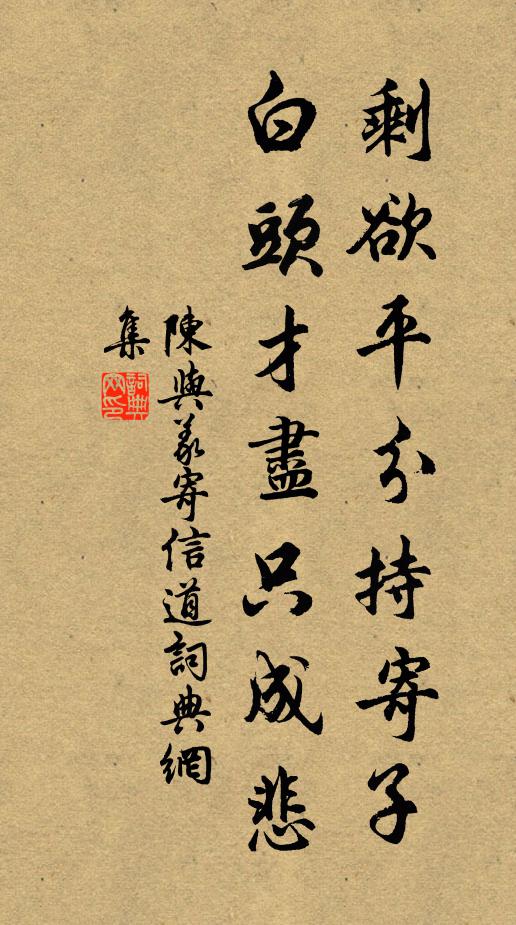 剩欲平分持寄子
白頭才盡只成悲
陳與義寄信道詞典網
集
詞典網印